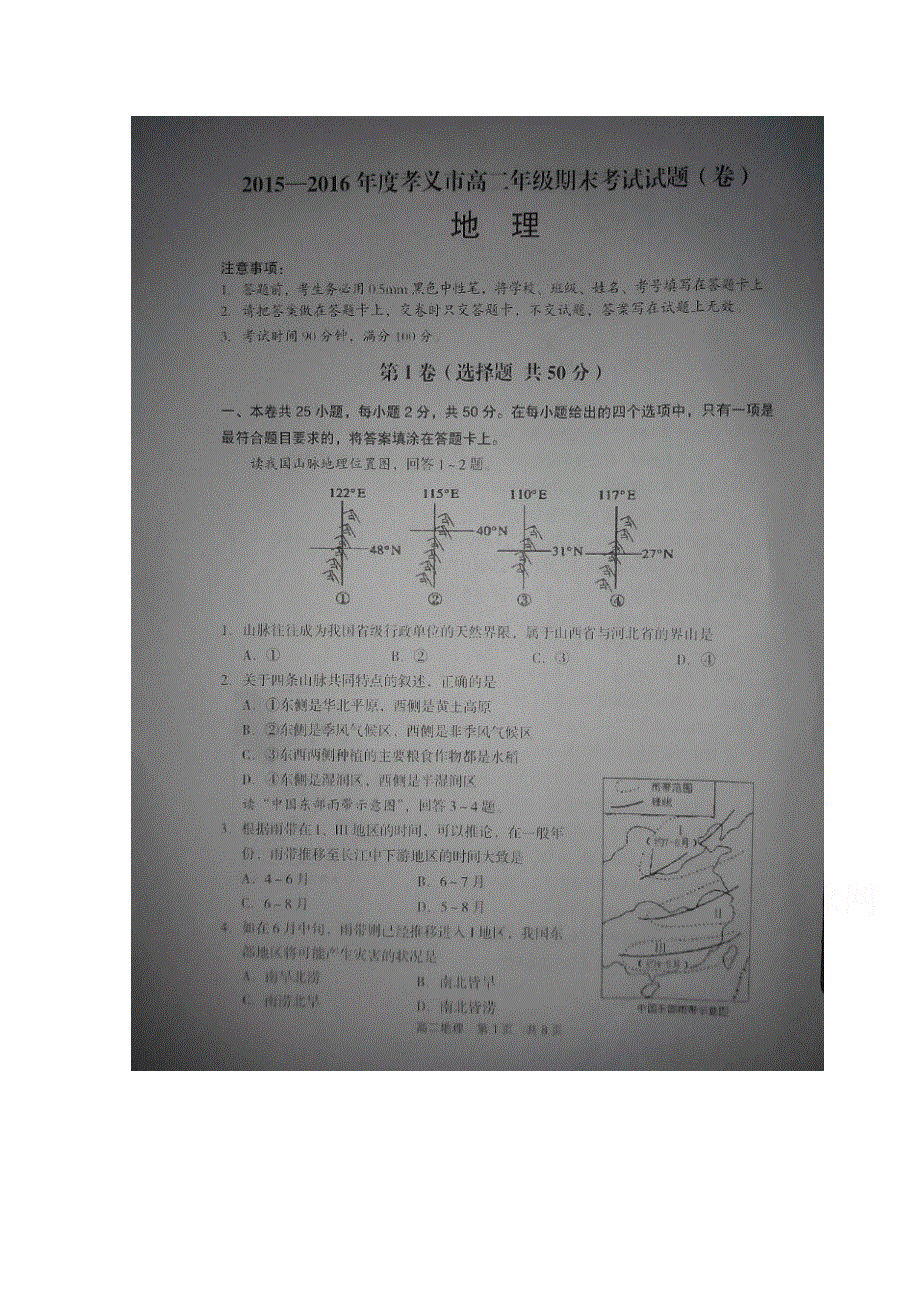 2015—2016年度孝义市高二年级期末考试试题(卷)
地 理
注意事项:
1. 答题前,考生务必用0.5mm黑色中性笔,将学校、班级、姓名、考号填写在答题卡上
2. 请把答案做在答题卡上,交卷时只交答题卡,不交试题,答案写在试题上无效
3. 考试时间90分钟,满分100分。
第Ⅰ卷(选择题 共50分)
一、本卷共25小题,每小题2分,共50分。在每小题给出的四个选项中,只有一项是
最符合题目要求的,将答案填涂在答题卡上。
读我国山脉地理位置图,回答1~2题。
122°E 115°E 110°E 117°E
40°N
48°N 31°N 27°N
① ② ③ ④
1. 山脉往往成为我国省级行政单位的天然界限,属于山西省与河北省的界山是
A. ① B. ② C. ③ D. ④
2. 关于四条山脉共同特点的叙述,正确的是
A. ①东侧是华北平原,西侧是黄土高原
B. ②东侧是季风气候区,西侧是非季风气候区
C. ③东西两侧种植的主要粮食作物都是水稻
D. ④东侧是湿润区,西侧是半湿润区
读“中国东部雨带示意图”,回答3~4题。
3. 根据雨带在Ⅰ、Ⅲ地区的时间,可以推论,在一般年
份,雨带推移至长江中下游地区的时间大致是
A. 4~6月 B. 6~7月
C. 6~8月 D. 5~8月
4. 如在6月中旬,雨带则已经推移进入Ⅰ地区,我国东
部地区将可能产生灾害的状况是
A. 南旱北涝 B. 南北皆旱
C. 南涝北旱 D. 南北皆涝
雨带范围
锋线
Ⅰ
(约7-8月)
Ⅱ
Ⅲ
中国东部雨带示意图
高二地理 第1页 共8页